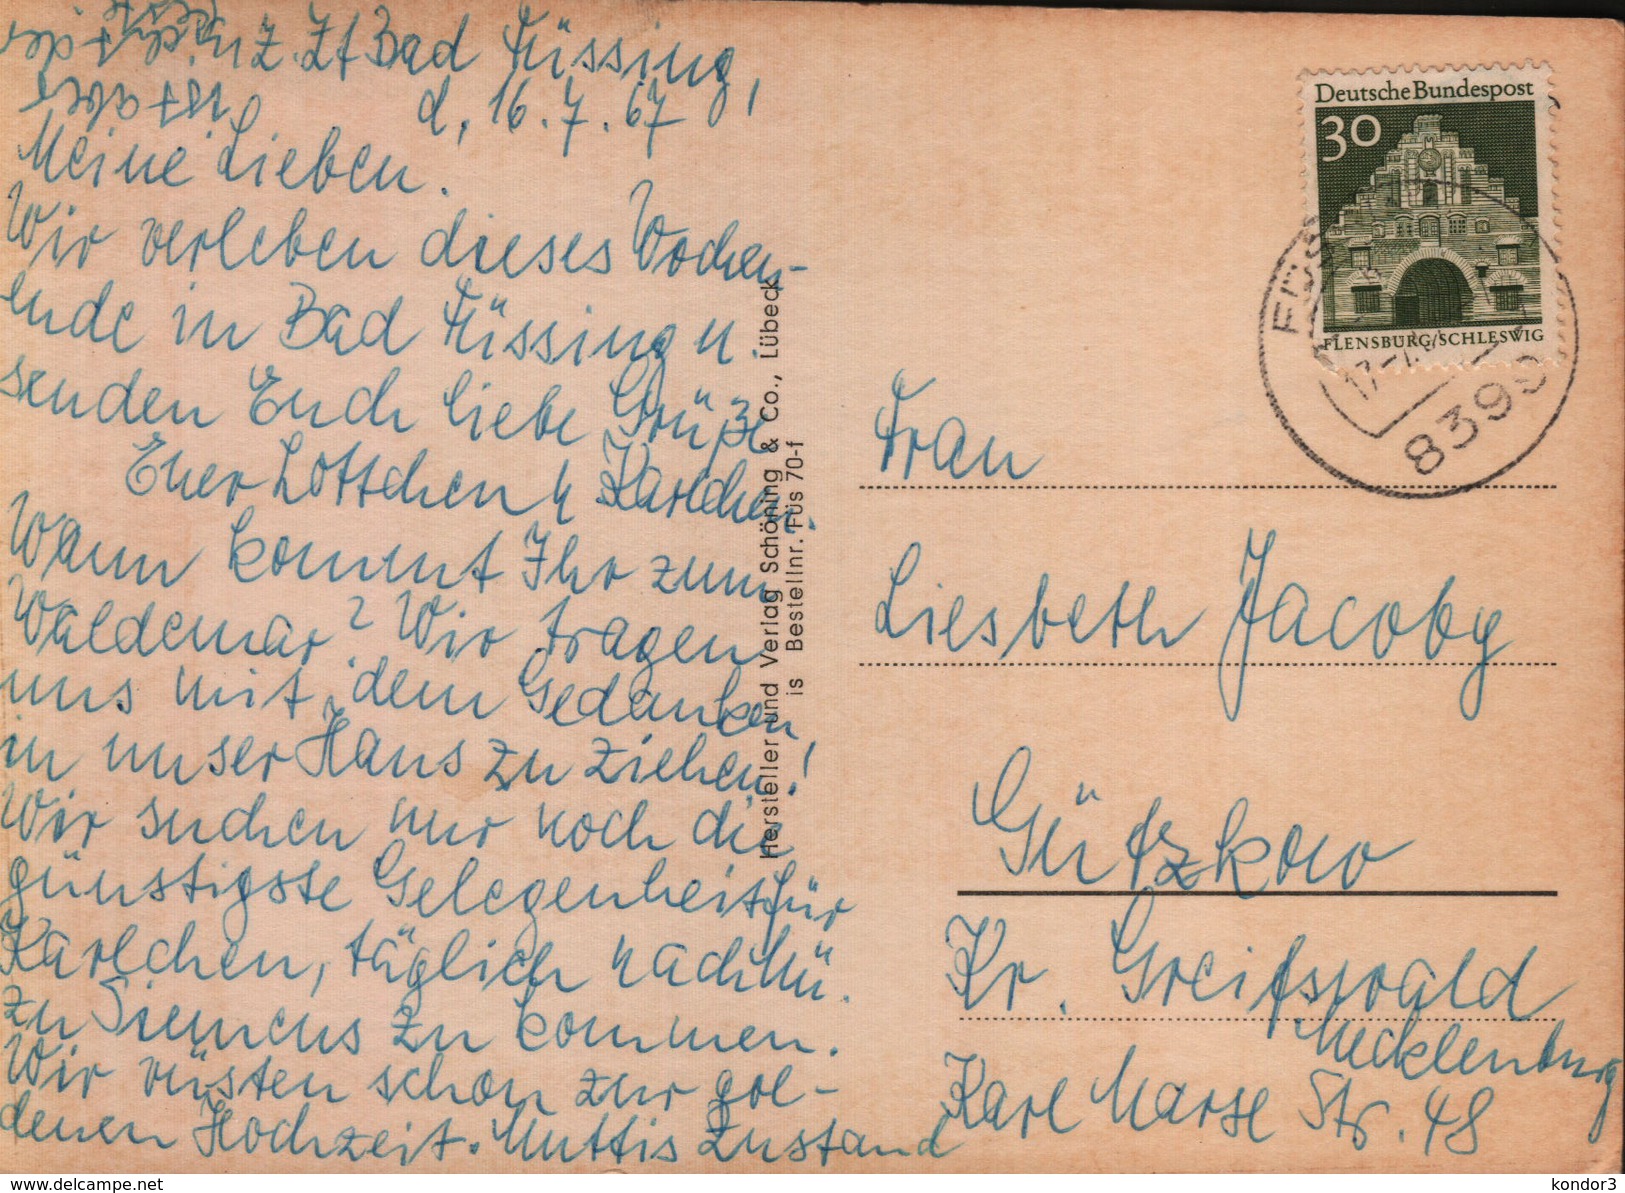 z. Zt Bad Füssing,
d. 16.7.67
Meine Lieben.
Wir verleben dieses Wochen-
ende in Bad Füssing u.
senden Euch liebe Grüße
Euer Lottchen u Karlchen.
Wann kommt Ihr zum
Waldemar? Wir tragen
uns mit dem Gedanken
in unser Haus zu ziehen!
Wir suchen nur noch die
günstigste Gelegenheit für
Karlchen, täglich nach Mü.
zu Siemens zu kommen.
Wir rüsten schon zur gol-
denen Hochzeit. Muttis Zustand
ist aber
Hersteller und Verlag Schöning & Co., Lübeck
is Bestellnr. Füs 70-f
Deutsche Bundespost
30
FLENSBURG/SCHLESWIG
FÜSS
17.-
8399
Frau
Liesbeth Jacoby
Gützkow
Kr. Greifswald
Mecklenburg
Karl Marx Str. 48
www.delcampe.net
kondor3